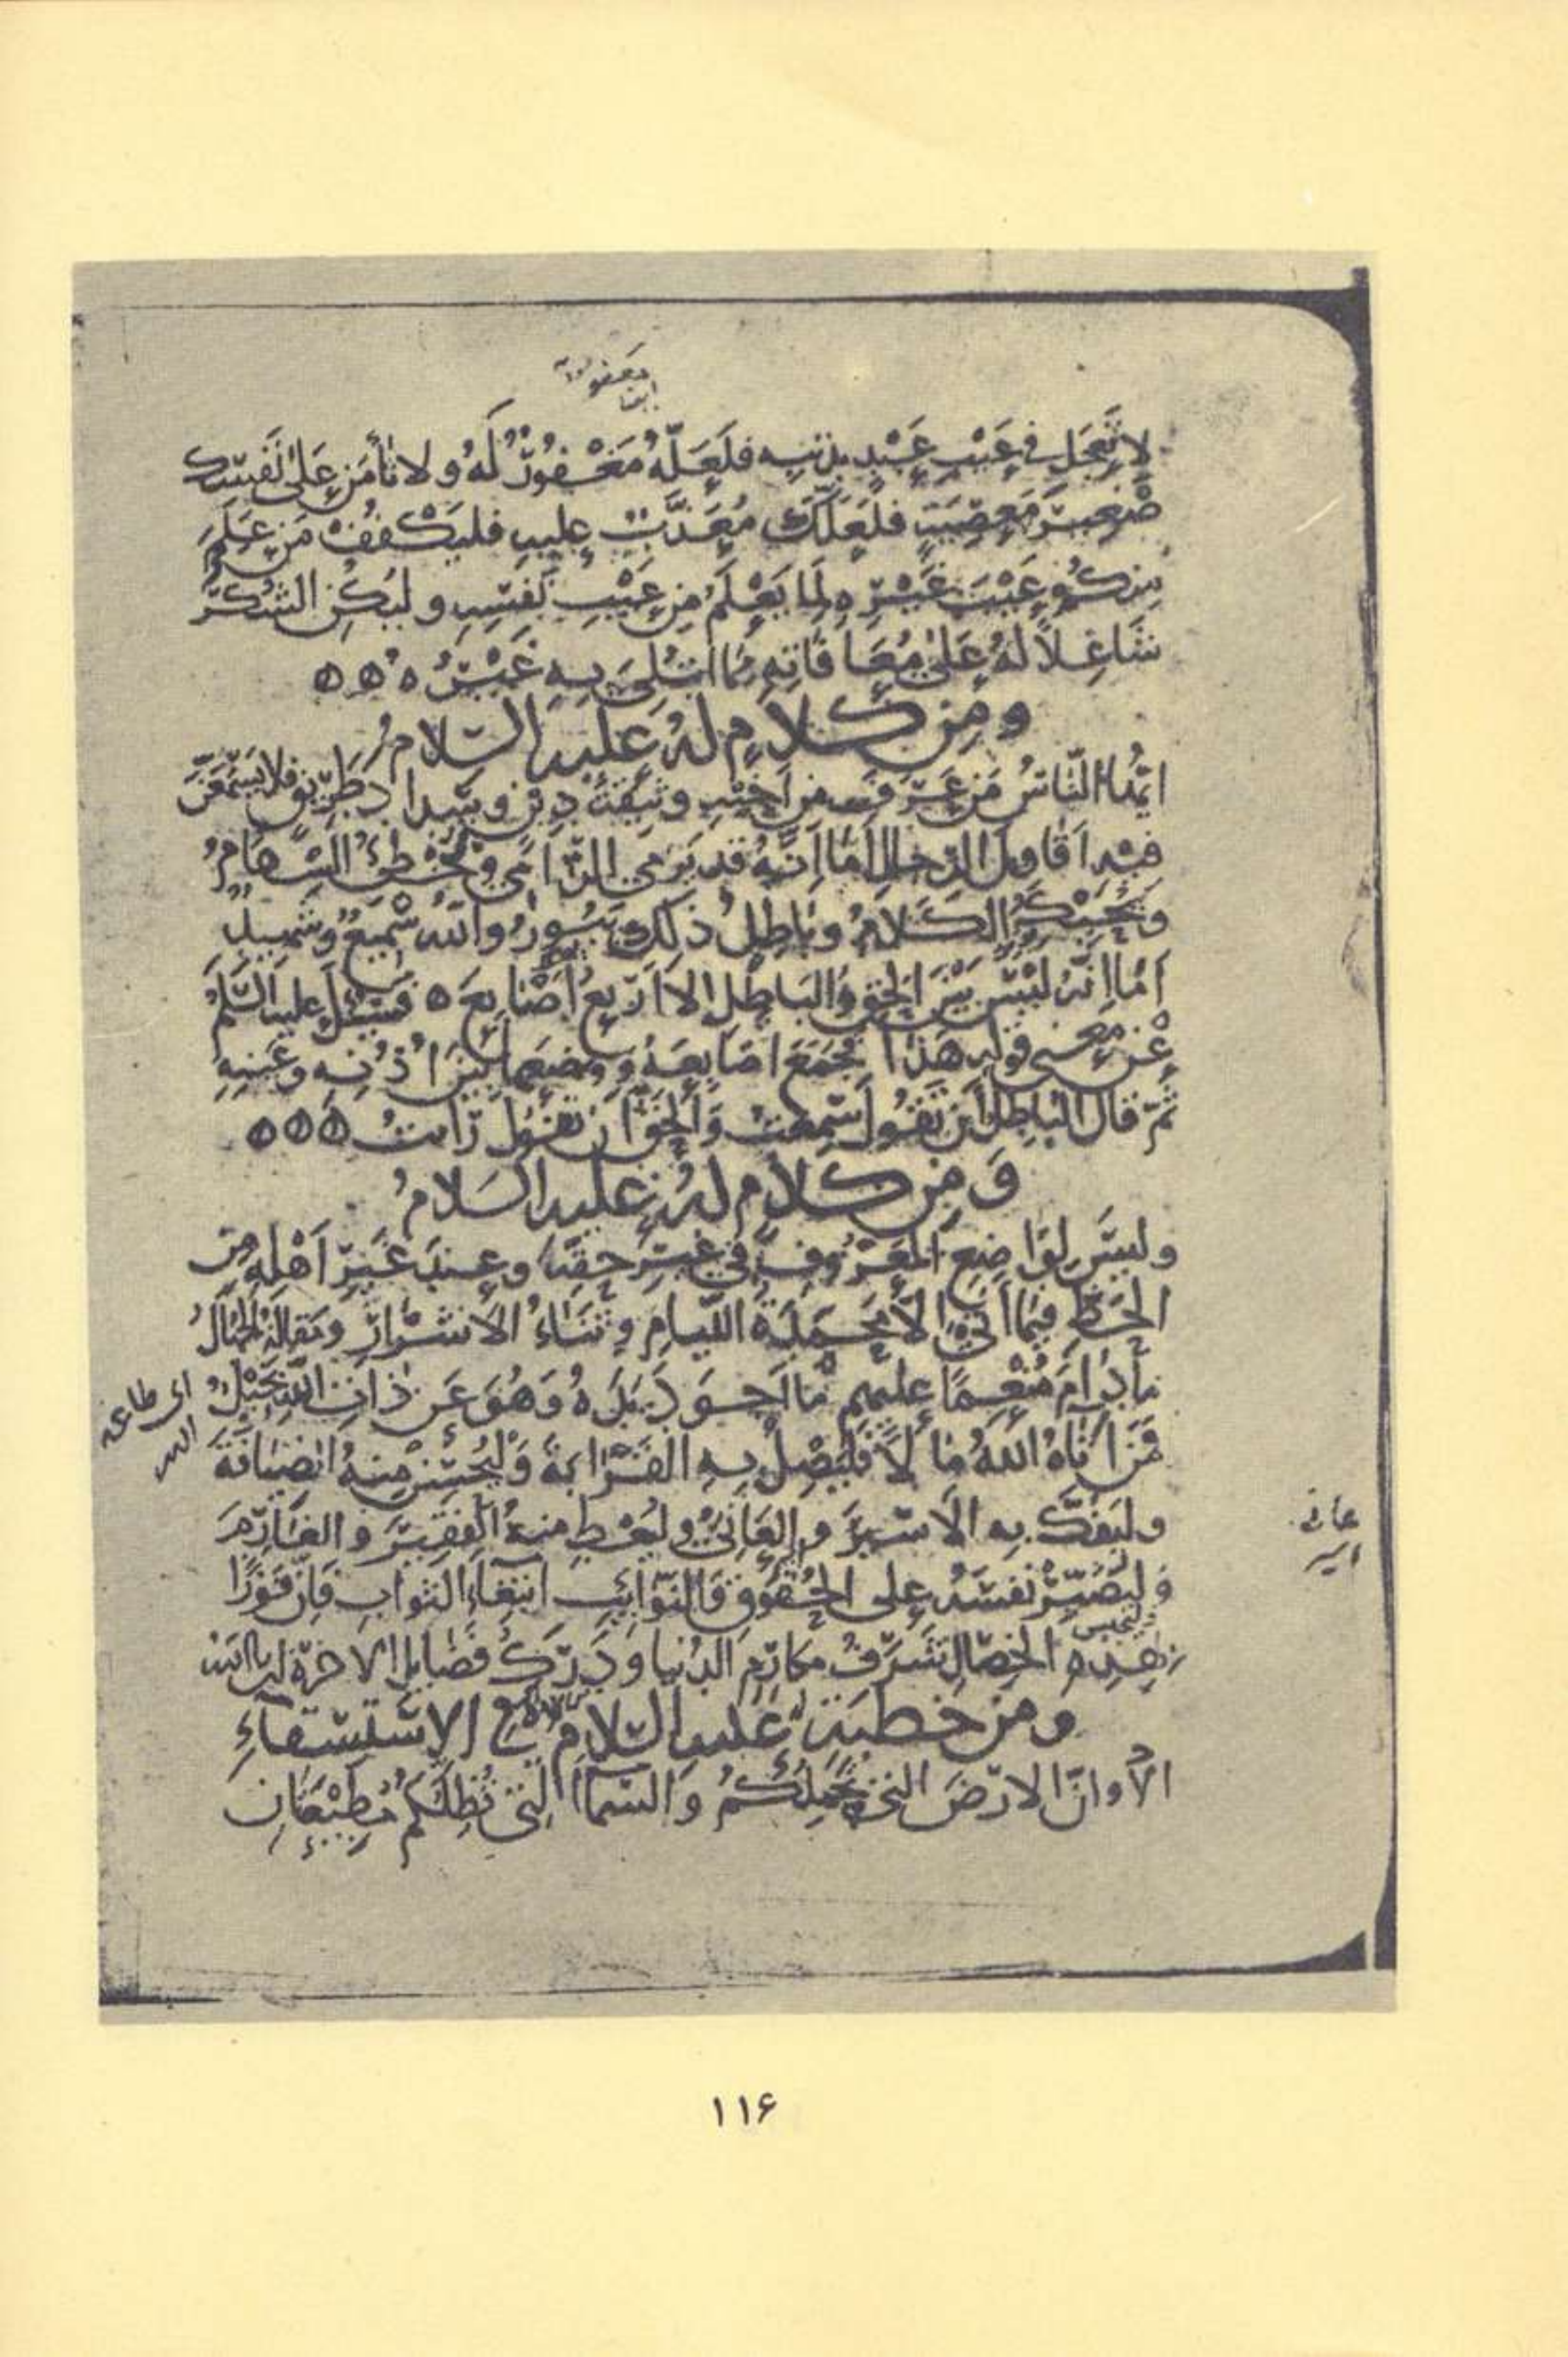 لا تَعجَل في عَيْبِ عَبْدٍ بذنبِه فلَعَلّهُ مَغْفُورٌ لَهُ ولا تأمَن عَلى نَفسِك
صَغيرَ مَعصِيَةٍ فلَعَلّكَ مُعَذَّبٌ عليه فليَكْفُفْ مَن عَلِمَ
مِنكُم عَيْبَ غَيْرِه لِمَا يَعْلَمُ مِن عَيْبِ نَفسِهِ وليَكُنِ الشُكرُ
شَاغِلاً لَهُ عَلى مُعَافَاتِهِ مما ابتُلِيَ بِهِ غَيْرُه
ومِن كَلامٍ لهُ عليه السّلامُ
ايّها النّاسُ مَن عَرَفَ مِن اَخيهِ وثيقَةَ دِينٍ وسَدادَ طَرِيقٍ فلا يَسْمَعَنَّ
فيه اَقاويلَ الرّجالِ اَمَا اِنّهُ قد يَرمي الرّامي وتُخْطِئُ السِّهَامُ
ويُحيكُ الكَلامُ وبَاطِلُ ذلك يَبُورُ واللّهُ سَميعٌ وشَهيدٌ
اَمَا اِنّه لَيْسَ بَيْنَ الحَقِّ والبَاطِلِ اِلا اَرْبَعُ اَصَابِعَ فسُئِلَ عليه السّلمُ
عَن مَعنى قولِه هذا فجَمَعَ اصَابِعَهُ ووضعها بَيْنَ اُذُنِه وعَينِهِ
ثمّ قال البَاطِلُ اَن تَقُولَ سَمِعتُ وَالحَقُّ اَن تقُولَ رَاَيتُ
وَمِن كلامٍ لهُ عليه السّلامُ
وليسَ لِوَاضِعِ المَعْرُوفِ في غيرِ حقّه وعِندَ غَيرِ اَهْلِه مِن
الحَظِّ فيما اَتى اِلا مَحْمَدَةُ اللّيامِ وثَنَاءُ الاشْرَارِ ومَقالةُ الجُهّالُ
مَا دَامَ مُنْعِمًا عليهم مَا اَجوَدَ يَدَه وَهُوَ عَن ذاتِ اللّهِ بَخيلٌ
اى طاعه
الله
فَمَن اَتاهُ اللهُ مَالاً فَليَصِلْ بهِ القَرَابَةَ وَلْيُحْسِنْ مِنهُ الضيَافَةَ
وليَفُكَّ بِه الاسيرَ والعَانيَ وليُعْطِ منهُ الفقيرَ والغارِمَ
عانى
اسير
وَليَصْبِرْ نَفسَهُ على الحُقُوقِ والنّوائِبِ ابتغَاءَ الثوابِ فَاِنّ فَوْزًا
بهذِهِ الخِصَالِ شَرَفُ مكارِمِ الدُنيا ودَرَكُ فَضايِلِ الاخرةِ ان شاالله
ومن خطبةٍ له عليه السّلامُ في الاسْتِسْقاءِ
الا وانّ الارْضَ التي تَحْمِلُكُمْ وَالسّماءَ التي تُظِلّكُمْ مُطيْعَتانِ
۱۱۶